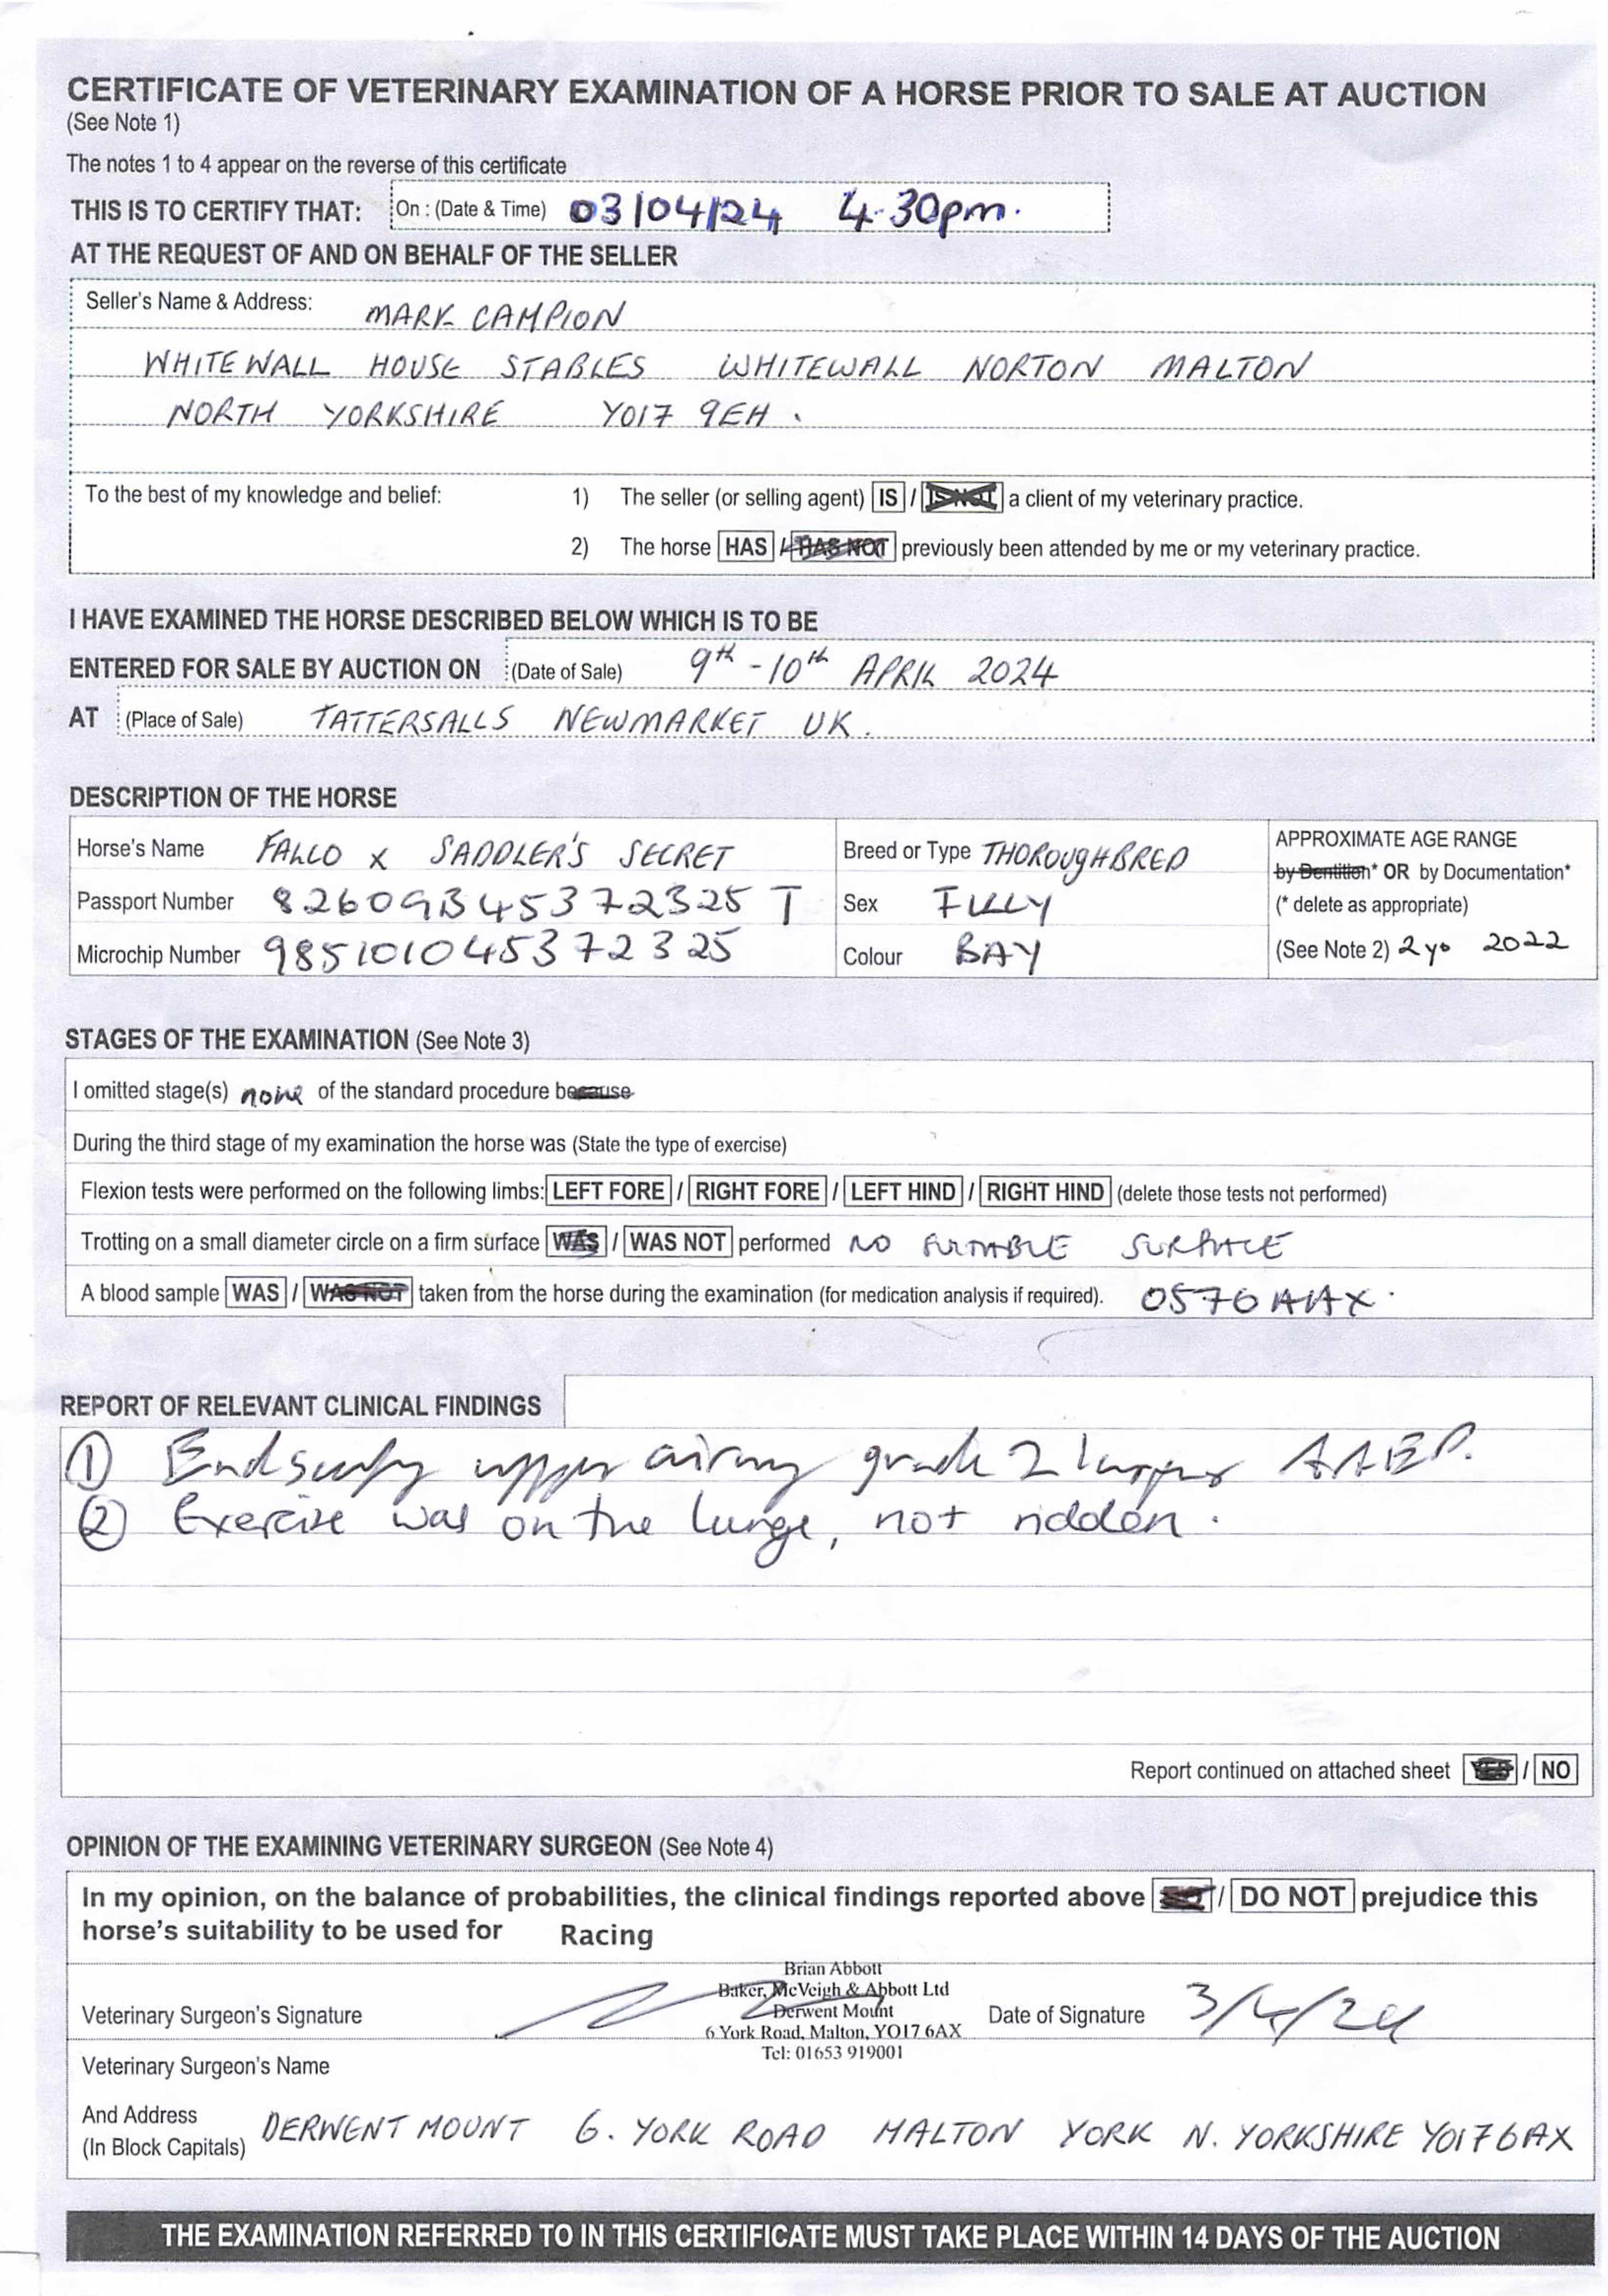 CERTIFICATE OF VETERINARY EXAMINATION OF A HORSE PRIOR TO SALE AT AUCTION
(See Note 1)
The notes 1 to 4 appear on the reverse of this certificate
THIS IS TO CERTIFY THAT: On : (Date & Time) 03/04/24 4.30pm.
AT THE REQUEST OF AND ON BEHALF OF THE SELLER
Seller's Name & Address: MARK CAMPION
WHITEWALL HOUSE STABLES WHITEWALL NORTON MALTON
NORTH YORKSHIRE YO17 9EH .
To the best of my knowledge and belief: 1) The seller (or selling agent) IS / IS NOT a client of my veterinary practice.
2) The horse HAS / HAS NOT previously been attended by me or my veterinary practice.
I HAVE EXAMINED THE HORSE DESCRIBED BELOW WHICH IS TO BE
ENTERED FOR SALE BY AUCTION ON (Date of Sale) 9th - 10th APRIL 2024
AT (Place of Sale) TATTERSALLS NEWMARKET UK.
DESCRIPTION OF THE HORSE
Horse's Name FALCO x SADDLER'S SECRET Breed or Type THOROUGHBRED APPROXIMATE AGE RANGE
by Dentition* OR by Documentation*
Passport Number 826093453 72325 T Sex FILLY (* delete as appropriate)
Microchip Number 985101045372325 Colour BAY (See Note 2) 2yo 2022
STAGES OF THE EXAMINATION (See Note 3)
I omitted stage(s) none of the standard procedure because
During the third stage of my examination the horse was (State the type of exercise)
Flexion tests were performed on the following limbs: LEFT FORE / RIGHT FORE / LEFT HIND / RIGHT HIND (delete those tests not performed)
Trotting on a small diameter circle on a firm surface WAS / WAS NOT performed NO SUITABLE SURFACE
A blood sample WAS / WAS NOT taken from the horse during the examination (for medication analysis if required). 0576AAX.
REPORT OF RELEVANT CLINICAL FINDINGS
① upper airway grade 2
② Exercise was on the lunge, not ridden.
Report continued on attached sheet YES / NO
OPINION OF THE EXAMINING VETERINARY SURGEON (See Note 4)
In my opinion, on the balance of probabilities, the clinical findings reported above DO / DO NOT prejudice this
horse's suitability to be used for Racing
Brian Abbott
Baker, McVeigh & Abbott Ltd
Veterinary Surgeon's Signature Derwent Mount Date of Signature 3/4/24
6 York Road, Malton, YO17 6AX
Tel: 01653 919001
Veterinary Surgeon's Name
And Address
(In Block Capitals) DERWENT MOUNT 6. YORK ROAD MALTON YORK N. YORKSHIRE YO17 6AX
THE EXAMINATION REFERRED TO IN THIS CERTIFICATE MUST TAKE PLACE WITHIN 14 DAYS OF THE AUCTION